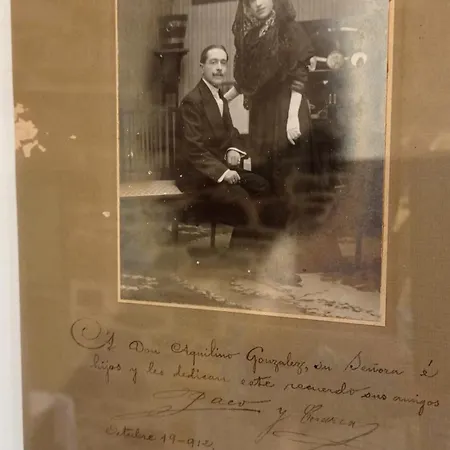 A Don Aquilino Gonzalez, su Señora é
hijos y les dedican este recuerdo sus amigos
Paco y
Octubre 19-912